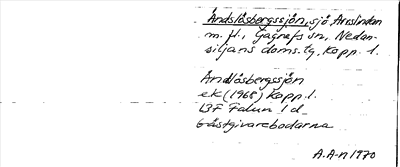 Åndslåsbergssjön, sjö, Årnslindan
m.fl., Gagnefs sn, Nedan-
siljans doms.tg, Kopp. l.
Åndlåsbergssjön
ek (1968) Kopp. l.
13F Falun 1 d
Gåstgivarebodarna
A.A-n 1970